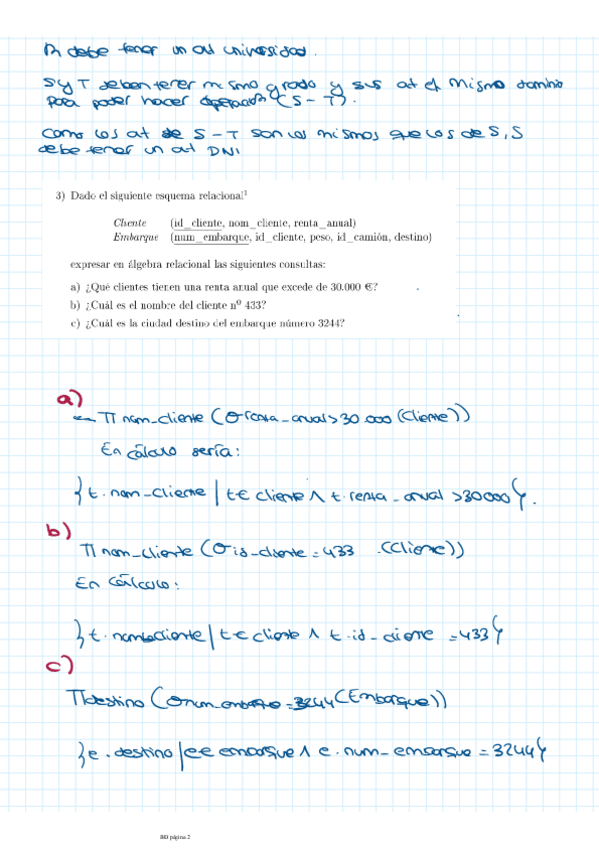 R debe tener un at universidad.
S y T deben tener mismo grado y sus at el mismo dominio
para poder hacer operación (S - T).
Como los at de S - T son los mismos que los de S, S
debe tener un at DNI
3) Dado el siguiente esquema relacional¹
Cliente (id_cliente, nom_cliente, renta_anual)
Embarque (num_embarque, id_cliente, peso, id_camión, destino)
expresar en álgebra relacional las siguientes consultas:
a) ¿Qué clientes tienen una renta anual que excede de 30.000 €?
b) ¿Cuál es el nombre del cliente nº 433?
c) ¿Cuál es la ciudad destino del embarque número 3244?
a)
← Π nom_cliente (σ renta_anual > 30.000 (Cliente))
En cálculo sería:
{t.nom_cliente | t ∈ cliente ∧ t.renta_anual > 30000}.
b)
Π nom_cliente (σ id_cliente = 433 (Cliente))
En Cálculo:
{t.nom_cliente | t ∈ cliente ∧ t.id_cliente = 433}
c)
Π destino (σ num_embarque = 3244 (Embarque))
{e.destino | e ∈ embarque ∧ e.num_embarque = 3244}
BD página 2